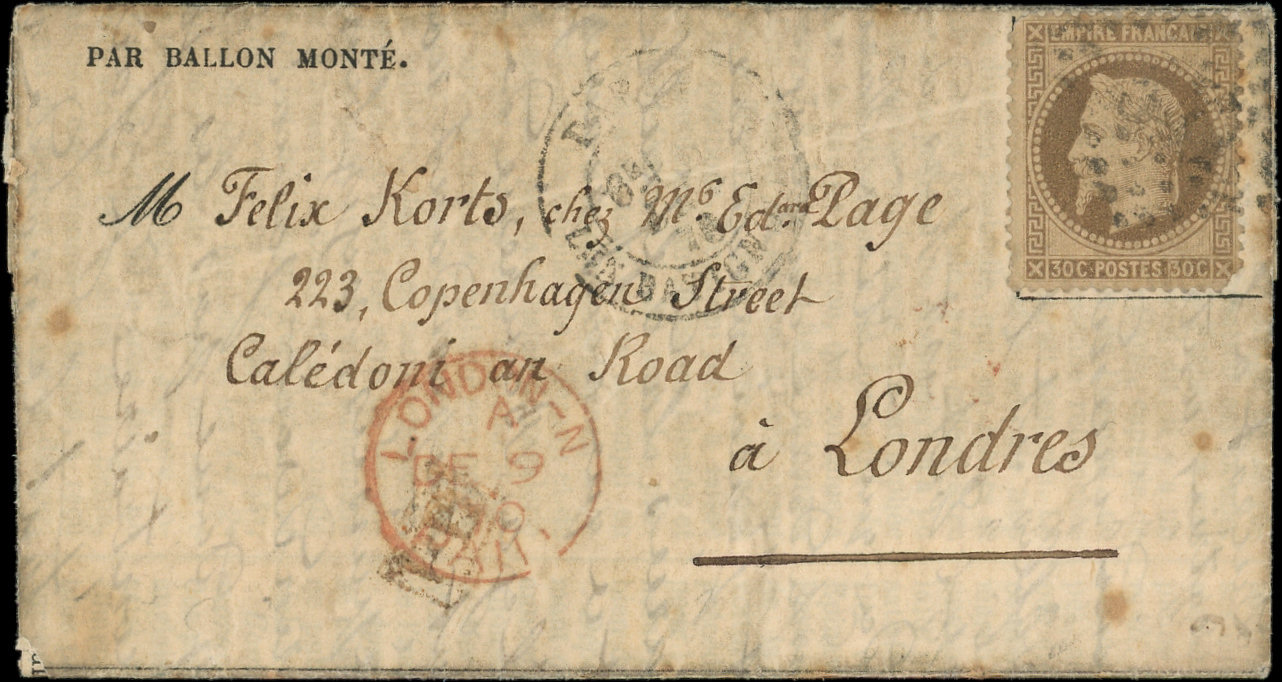 PAR BALLON MONTÉ.
EMPIRE FRANCAIS
30C POSTES 30C
M Felix Korts, chez Mʳ Edᵃʳᵈ Page
223, Copenhagen Street
Calédoni an Road
à Londres
LONDON-N
A
DE 9
70
PAID